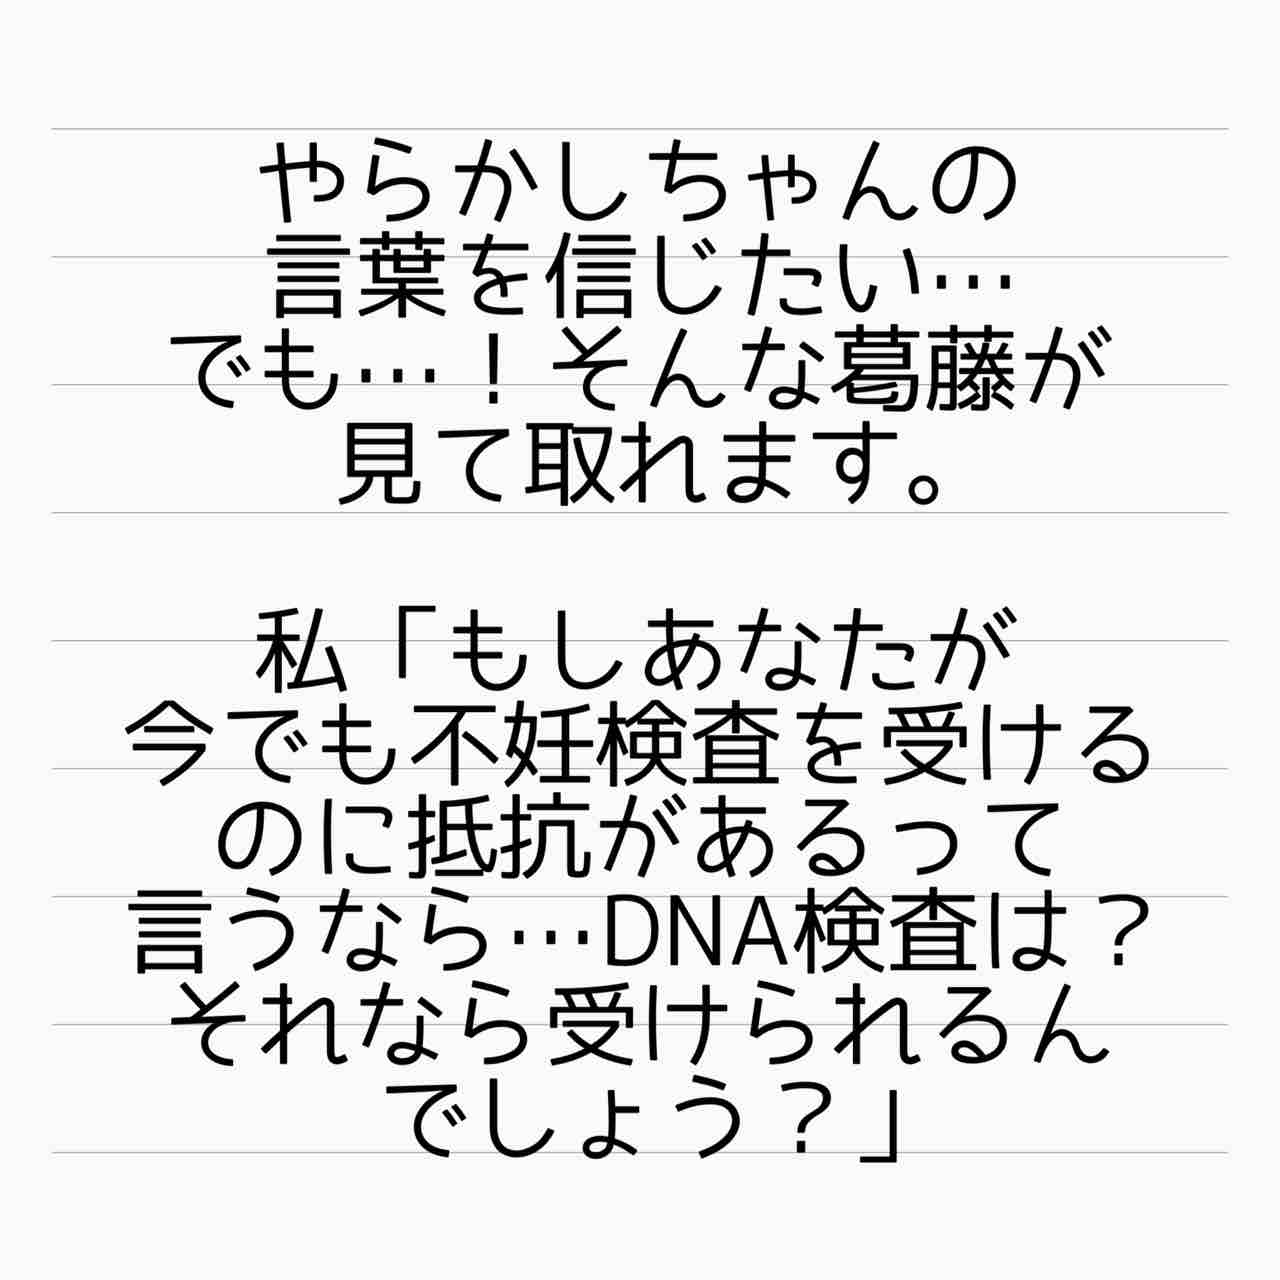 やらかしちゃんの
言葉を信じたい…
でも…！そんな葛藤が
見て取れます。
私「もしあなたが
今でも不妊検査を受ける
のに抵抗があるって
言うなら…DNA検査は？
それなら受けられるん
でしょう？」